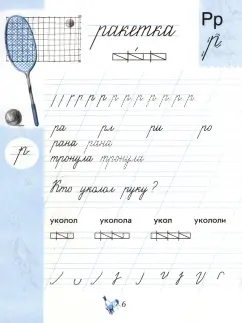 ракетка
Рр
р
р р р р р р р р р р р р
р
ра рл ри ро
рана рана
тронула тронула
Кто уколол руку?
уколол уколола укол укололи
6